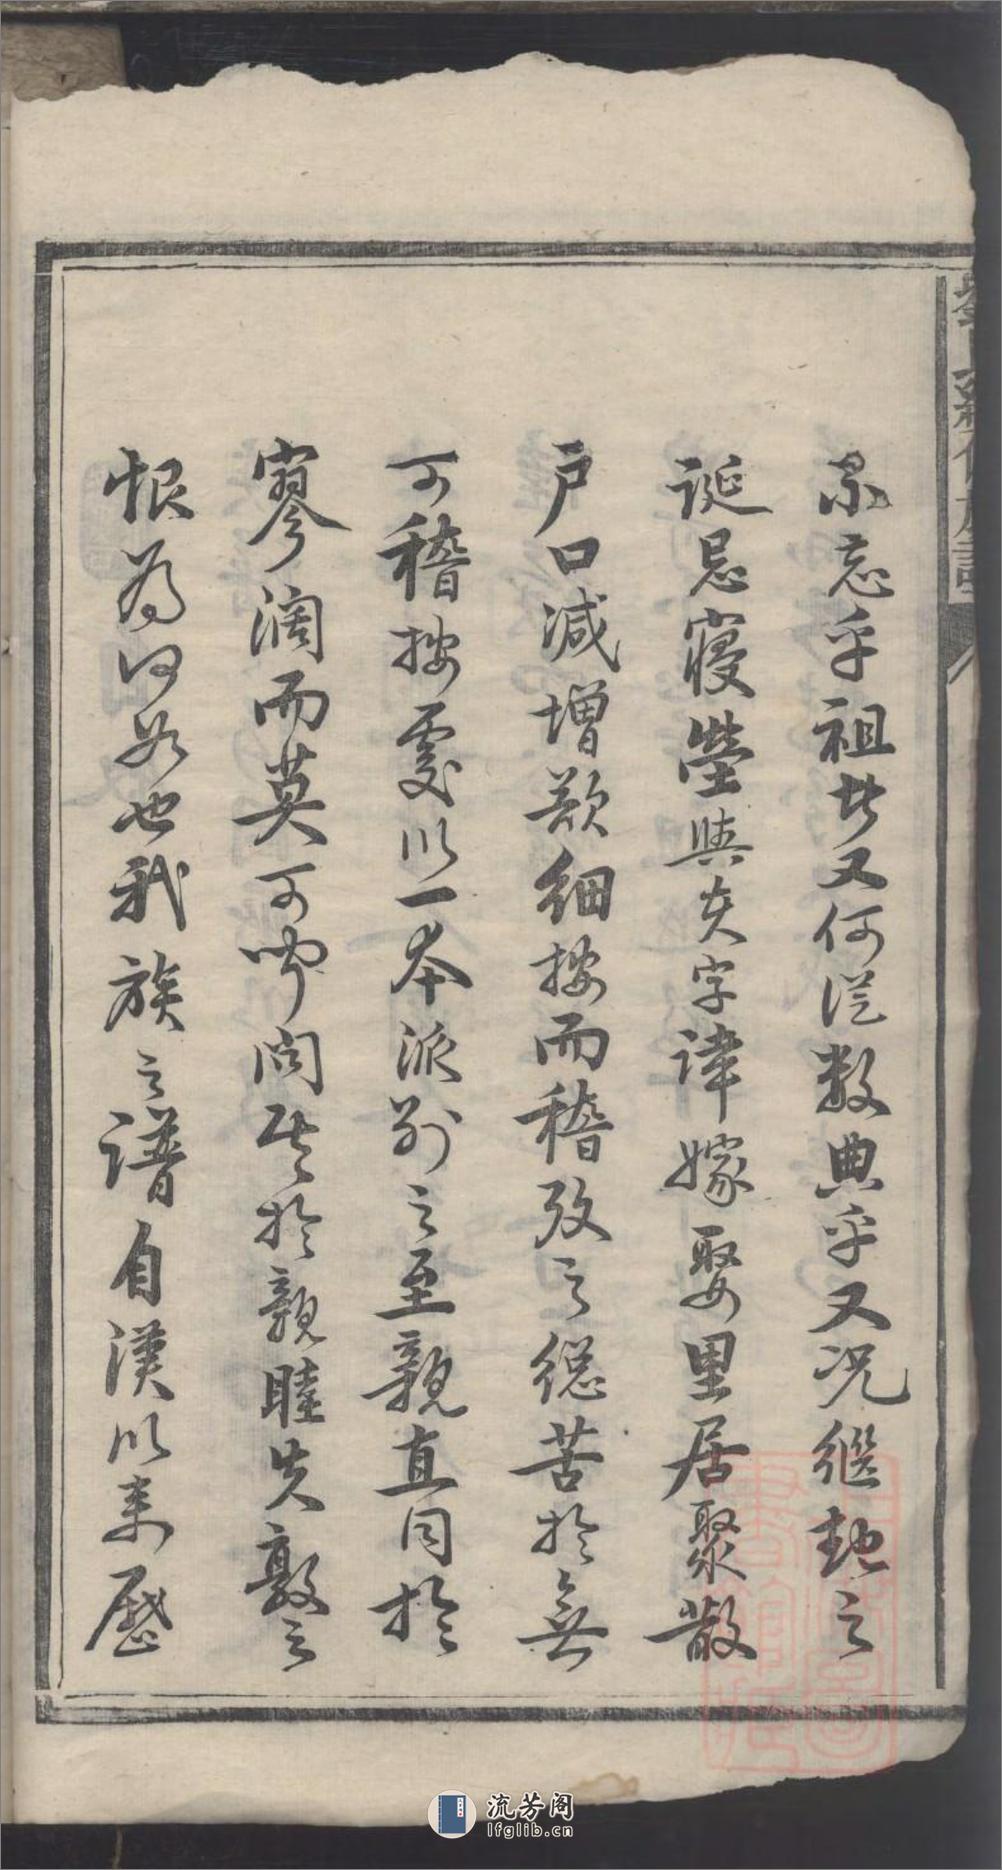 忘乎祖者又何從数典乎又况繼起之
誕忌寢塋與夫字諱嫁娶里居聚散
户口減增欲細按而稽攷之總苦於無
可稽按處以一本派别之至親直同於
寥濶而莫可聞問其於親睦失敦之
恨為何如也我族之譜自漢以来歷
流芳阁
lfglib.cn